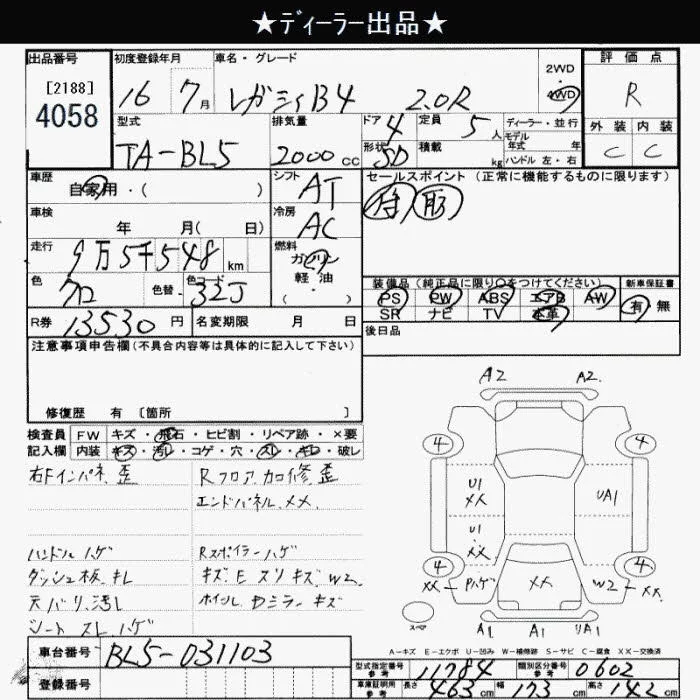 ★ディーラー出品★
出品番号
[2188]
4058
初度登録年月
16 7月
車名・グレード
レガシィB4 2.0R
2WD
・
4WD
評価点
R
外装 内装
C C
型式
TA-BL5
排気量
2000cc
ドア 4
形状 SD
定員 5人
積載 kg
ディーラー・並行
モデル
年式 年式
ハンドル 左・右
車歴
自家用・( )
シフト
AT
セールスポイント (正常に機能するものに限ります)
車検
年 月( 日)
冷房
AC
走行
9万5千548km
燃料
ガソリン
軽油
・( )
色
クロ
色替・
色コード
32J
装備品(純正品に限り○をつけてください)
PS PW ABS エアB AW
SR ナビ TV 本革
新車保証書
有 無
R券 13530円
名変期限 月 日
後日品
注意事項申告欄(不具合内容等は具体的に記入して下さい)
修復歴 有 〔箇所 〕
検査員
記入欄
FW キズ・飛石・ヒビ割・リペア跡・×要
内装 キズ・汚レ・コゲ・穴・スレ・キレ・破レ
右Fインパネ 歪
Rフロア 加修 歪
エンドパネル XX
ハンドル ハゲ
ダッシュ板 キレ
天バリ 汚レ
シート スレ ハゲ
Rスポイラー ハゲ
キズ E スリキズ W2
ホイル Dミラー キズ
A2 A2
4 4
U1
XX
UA1
U1
XX
4 4
XX Pハゲ XX W2 XX
スペア
A1 A1 UA1
A-キズ E-エクボ U-凹み W-補修跡 S-サビ C-腐食 XX-交換済
車台番号 BL5-031103
登録番号
型式指定番号
参考
11784
類別区分番号
参考
0602
車庫証明用
参考
長さ 463cm 幅 173cm 高さ 142cm